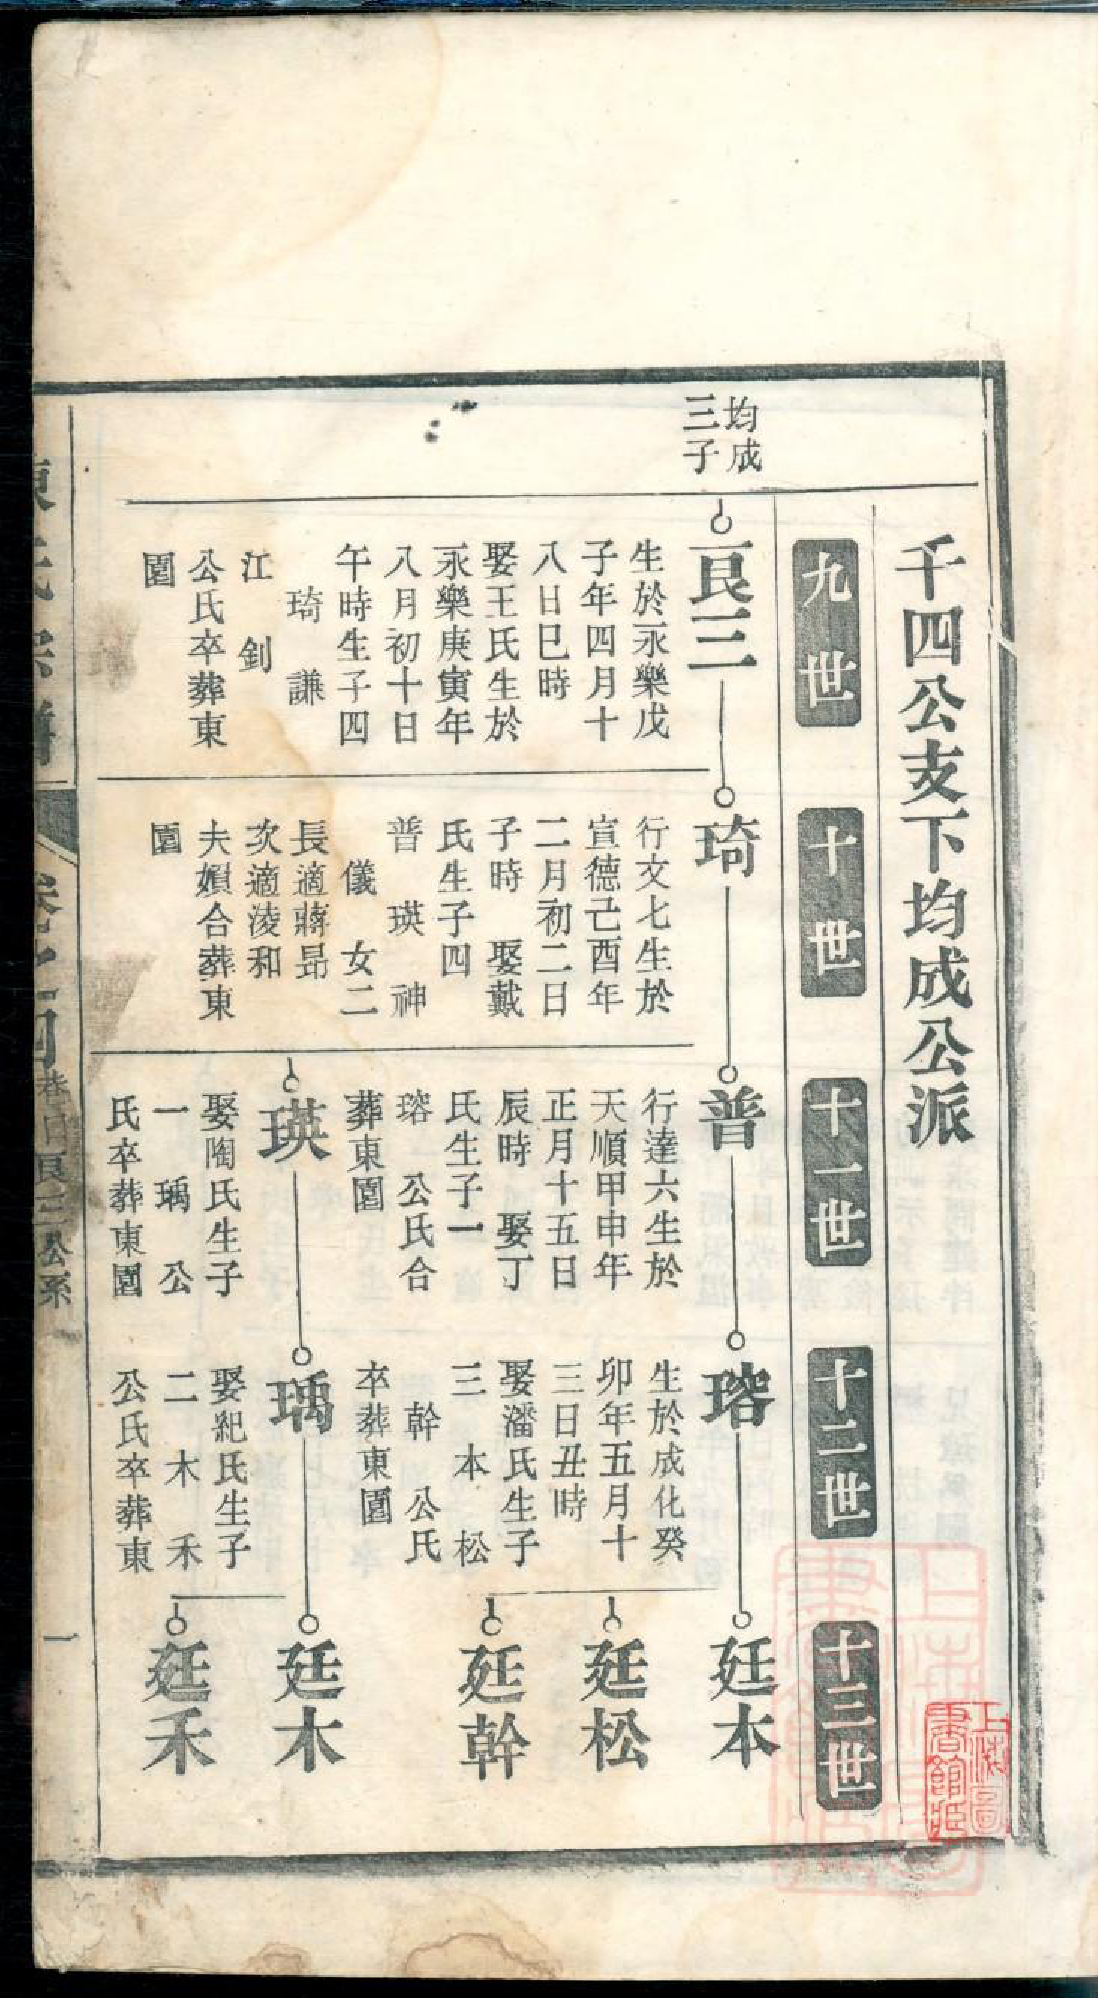 千四公支下均成公派
九世
十世
十一世
十二世
十三世
均成
三子
艮三
生於永樂戊
子年四月十
八日巳時
娶王氏生於
永樂庚寅年
八月初十日
午時生子四
琦 謙
江 釗
公氏卒葬東
園
琦
行文七生於
宣德己酉年
二月初二日
子時 娶戴
氏生子四
普 瑛 神
儀 女二
長適蔣昂
次適淩和
夫嬪合葬東
園
普
行達六生於
天順甲申年
正月十五日
辰時 娶丁
氏生子一
瑢 公氏合
葬東園
瑛
娶陶氏生子
一 瑀 公
氏卒葬東園
瑢
生於成化癸
卯年五月十
三日丑時
娶潘氏生子
三 本 松
幹 公氏
卒葬東園
瑀
娶紀氏生子
二 木 禾
公氏卒葬東
廷本
廷松
廷幹
廷木
廷禾
氏宗譜
卷之四
艮三公系
一
上海圖
書館藏